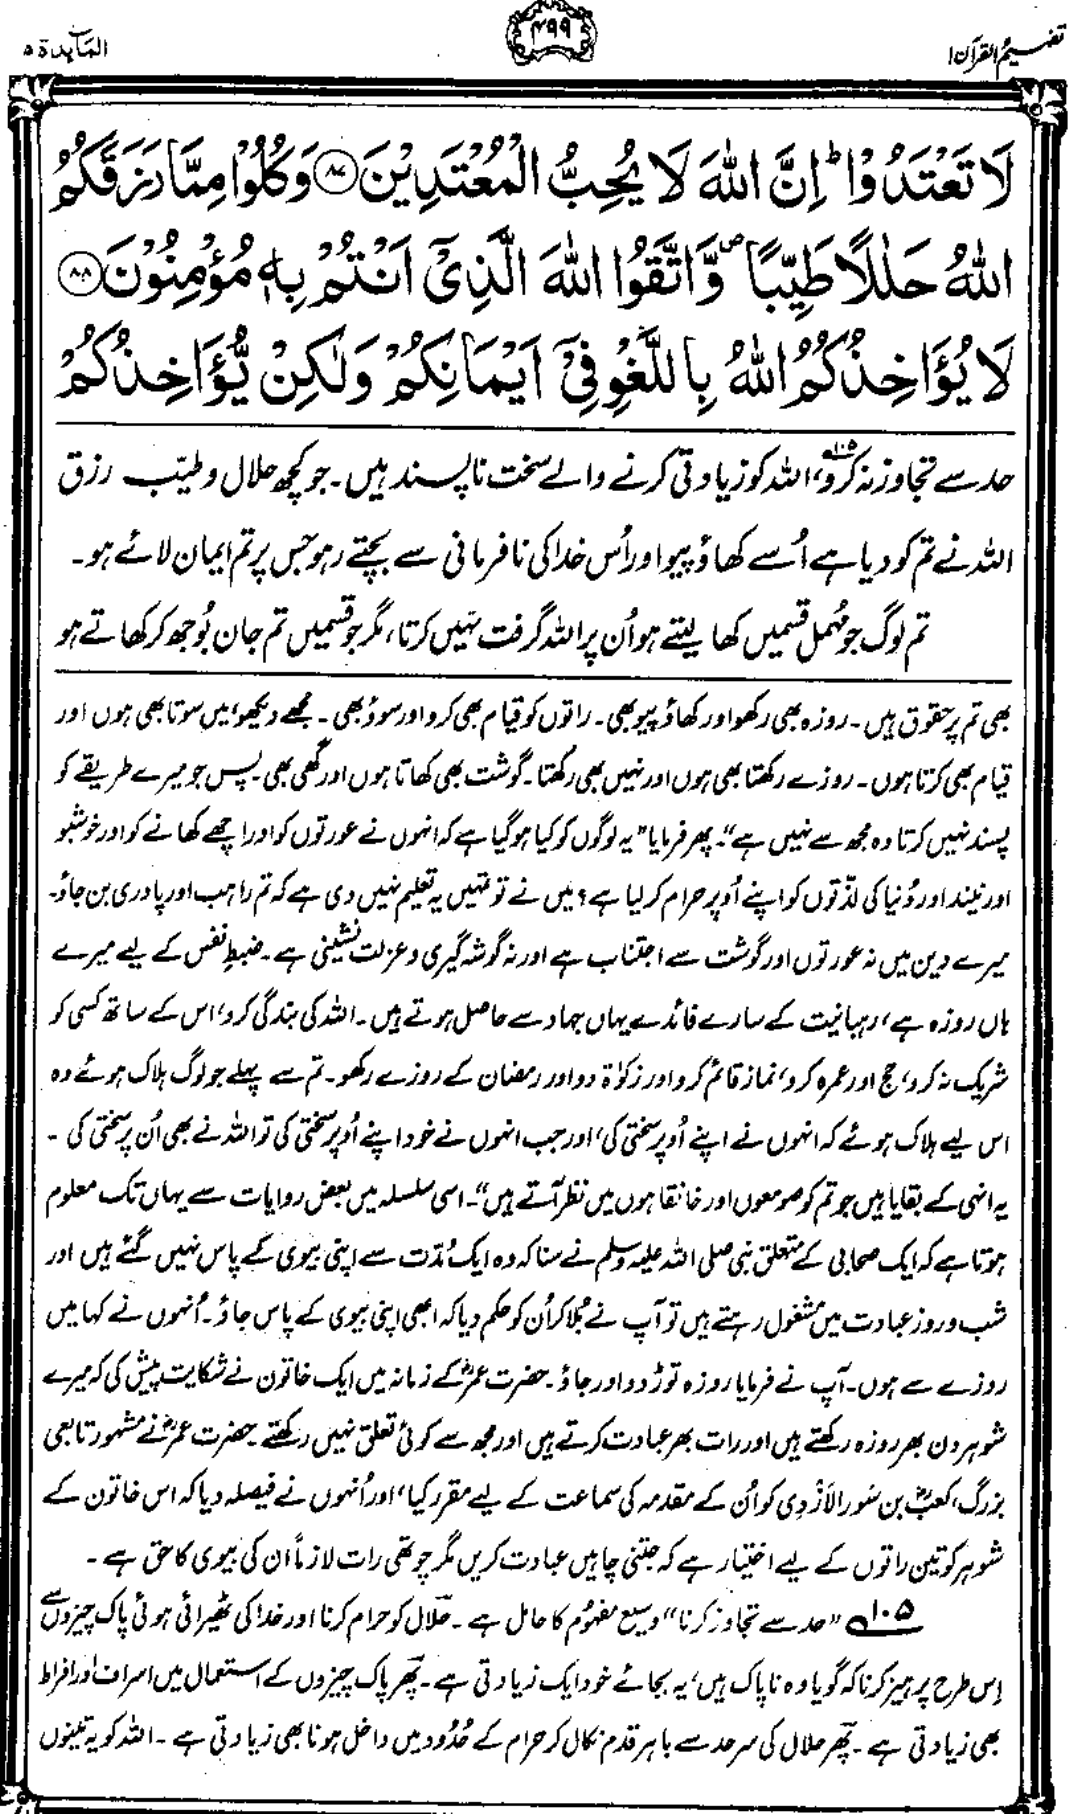 تفہیم القرآن ۱
۴۹۹
المآیدۃ ۵
لَا تَعْتَدُوْا ؕ اِنَّ اللّٰهَ لَا يُحِبُّ الْمُعْتَدِيْنَ ﴿۸۷﴾ وَكُلُوْا مِمَّا رَزَقَكُمُ
اللّٰهُ حَلٰلًا طَيِّبًا ۪ وَّاتَّقُوا اللّٰهَ الَّذِیْۤ اَنْتُمْ بِهٖ مُؤْمِنُوْنَ ﴿۸۸﴾
لَا يُؤَاخِذُكُمُ اللّٰهُ بِاللَّغْوِ فِیْۤ اَيْمَانِكُمْ وَلٰكِنْ يُّؤَاخِذُكُمْ
حد سے تجاوز نہ کرو،۱۰۵ اللہ کو زیادتی کرنے والے سخت ناپسند ہیں۔ جو کچھ حلال و طیّب رزق
اللہ نے تم کو دیا ہے اُسے کھاؤ پیو اور اُس خدا کی نافرمانی سے بچتے رہو جس پر تم ایمان لائے ہو۔
تم لوگ جو مُہمل قسمیں کھا لیتے ہو اُن پر اللہ گرفت نہیں کرتا، مگر جو قسمیں تم جان بُوجھ کر کھاتے ہو
بھی تم پر حقوق ہیں۔ روزہ بھی رکھو اور کھاؤ پیو بھی۔ راتوں کو قیام بھی کرو اور سوؤ بھی۔ مجھے دیکھو، میں سوتا بھی ہوں اور
قیام بھی کرتا ہوں۔ روزے رکھتا بھی ہوں اور نہیں بھی رکھتا۔ گوشت بھی کھاتا ہوں اور گھی بھی۔ پس جو میرے طریقے کو
پسند نہیں کرتا وہ مجھ سے نہیں ہے“۔ پھر فرمایا ”یہ لوگوں کو کیا ہو گیا ہے کہ انہوں نے عورتوں کو اور اچھے کھانے کو اور خوشبو
اور نیند اور دُنیا کی لذّتوں کو اپنے اُوپر حرام کر لیا ہے؟ میں نے تو تمہیں یہ تعلیم نہیں دی ہے کہ تم راہب اور پادری بن جاؤ۔
میرے دین میں نہ عورتوں اور گوشت سے اجتناب ہے اور نہ گوشہ گیری و عزلت نشینی ہے۔ ضبطِ نفس کے لیے میرے
ہاں روزہ ہے، رہبانیت کے سارے فائدے یہاں جہاد سے حاصل ہوتے ہیں۔ اللہ کی بندگی کرو، اس کے ساتھ کسی کو
شریک نہ کرو، حج اور عمرہ کرو، نماز قائم کرو اور زکوٰۃ دو اور رمضان کے روزے رکھو۔ تم سے پہلے جو لوگ ہلاک ہوئے وہ
اس لیے ہلاک ہوئے کہ انہوں نے اپنے اُوپر سختی کی، اور جب انہوں نے خود اپنے اُوپر سختی کی تو اللہ نے بھی اُن پر سختی کی۔
یہ انہی کے بقایا ہیں جو تم کو صومعوں اور خانقاہوں میں نظر آتے ہیں“۔ اسی سلسلہ میں بعض روایات سے یہاں تک معلوم
ہوتا ہے کہ ایک صحابی کے متعلق نبی صلی اللہ علیہ وسلم نے سنا کہ وہ ایک مُدّت سے اپنی بیوی کے پاس نہیں گئے ہیں اور
شب و روز عبادت میں مشغول رہتے ہیں تو آپ نے بُلا کر اُن کو حکم دیا کہ ابھی اپنی بیوی کے پاس جاؤ۔ اُنہوں نے کہا میں
روزے سے ہوں۔ آپ نے فرمایا روزہ توڑ دو اور جاؤ۔ حضرت عمرؓ کے زمانہ میں ایک خاتون نے شکایت پیش کی کہ میرے
شوہر دن بھر روزہ رکھتے ہیں اور رات بھر عبادت کرتے ہیں اور مجھ سے کوئی تعلق نہیں رکھتے۔ حضرت عمرؓ نے مشہور تابعی
بزرگ، کعبؓ بن سُور الاَزْدِی کو اُن کے مقدمہ کی سماعت کے لیے مقرر کیا، اور اُنہوں نے فیصلہ دیا کہ اس خاتون کے
شوہر کو تین راتوں کے لیے اختیار ہے کہ جتنی چاہیں عبادت کریں مگر چوتھی رات لازماً ان کی بیوی کا حق ہے۔
۱۰۵ ”حد سے تجاوز کرنا“ وسیع مفہُوم کا حامل ہے۔ حلال کو حرام کرنا اور خدا کی ٹھیرائی ہوئی پاک چیزوں سے
اِس طرح پرہیز کرنا کہ گویا وہ ناپاک ہیں، یہ بجائے خود ایک زیادتی ہے۔ پھر پاک چیزوں کے استعمال میں اسراف اور افراط
بھی زیادتی ہے۔ پھر حلال کی سرحد سے باہر قدم نکال کر حرام کے حُدُود میں داخل ہونا بھی زیادتی ہے۔ اللہ کو یہ تینوں